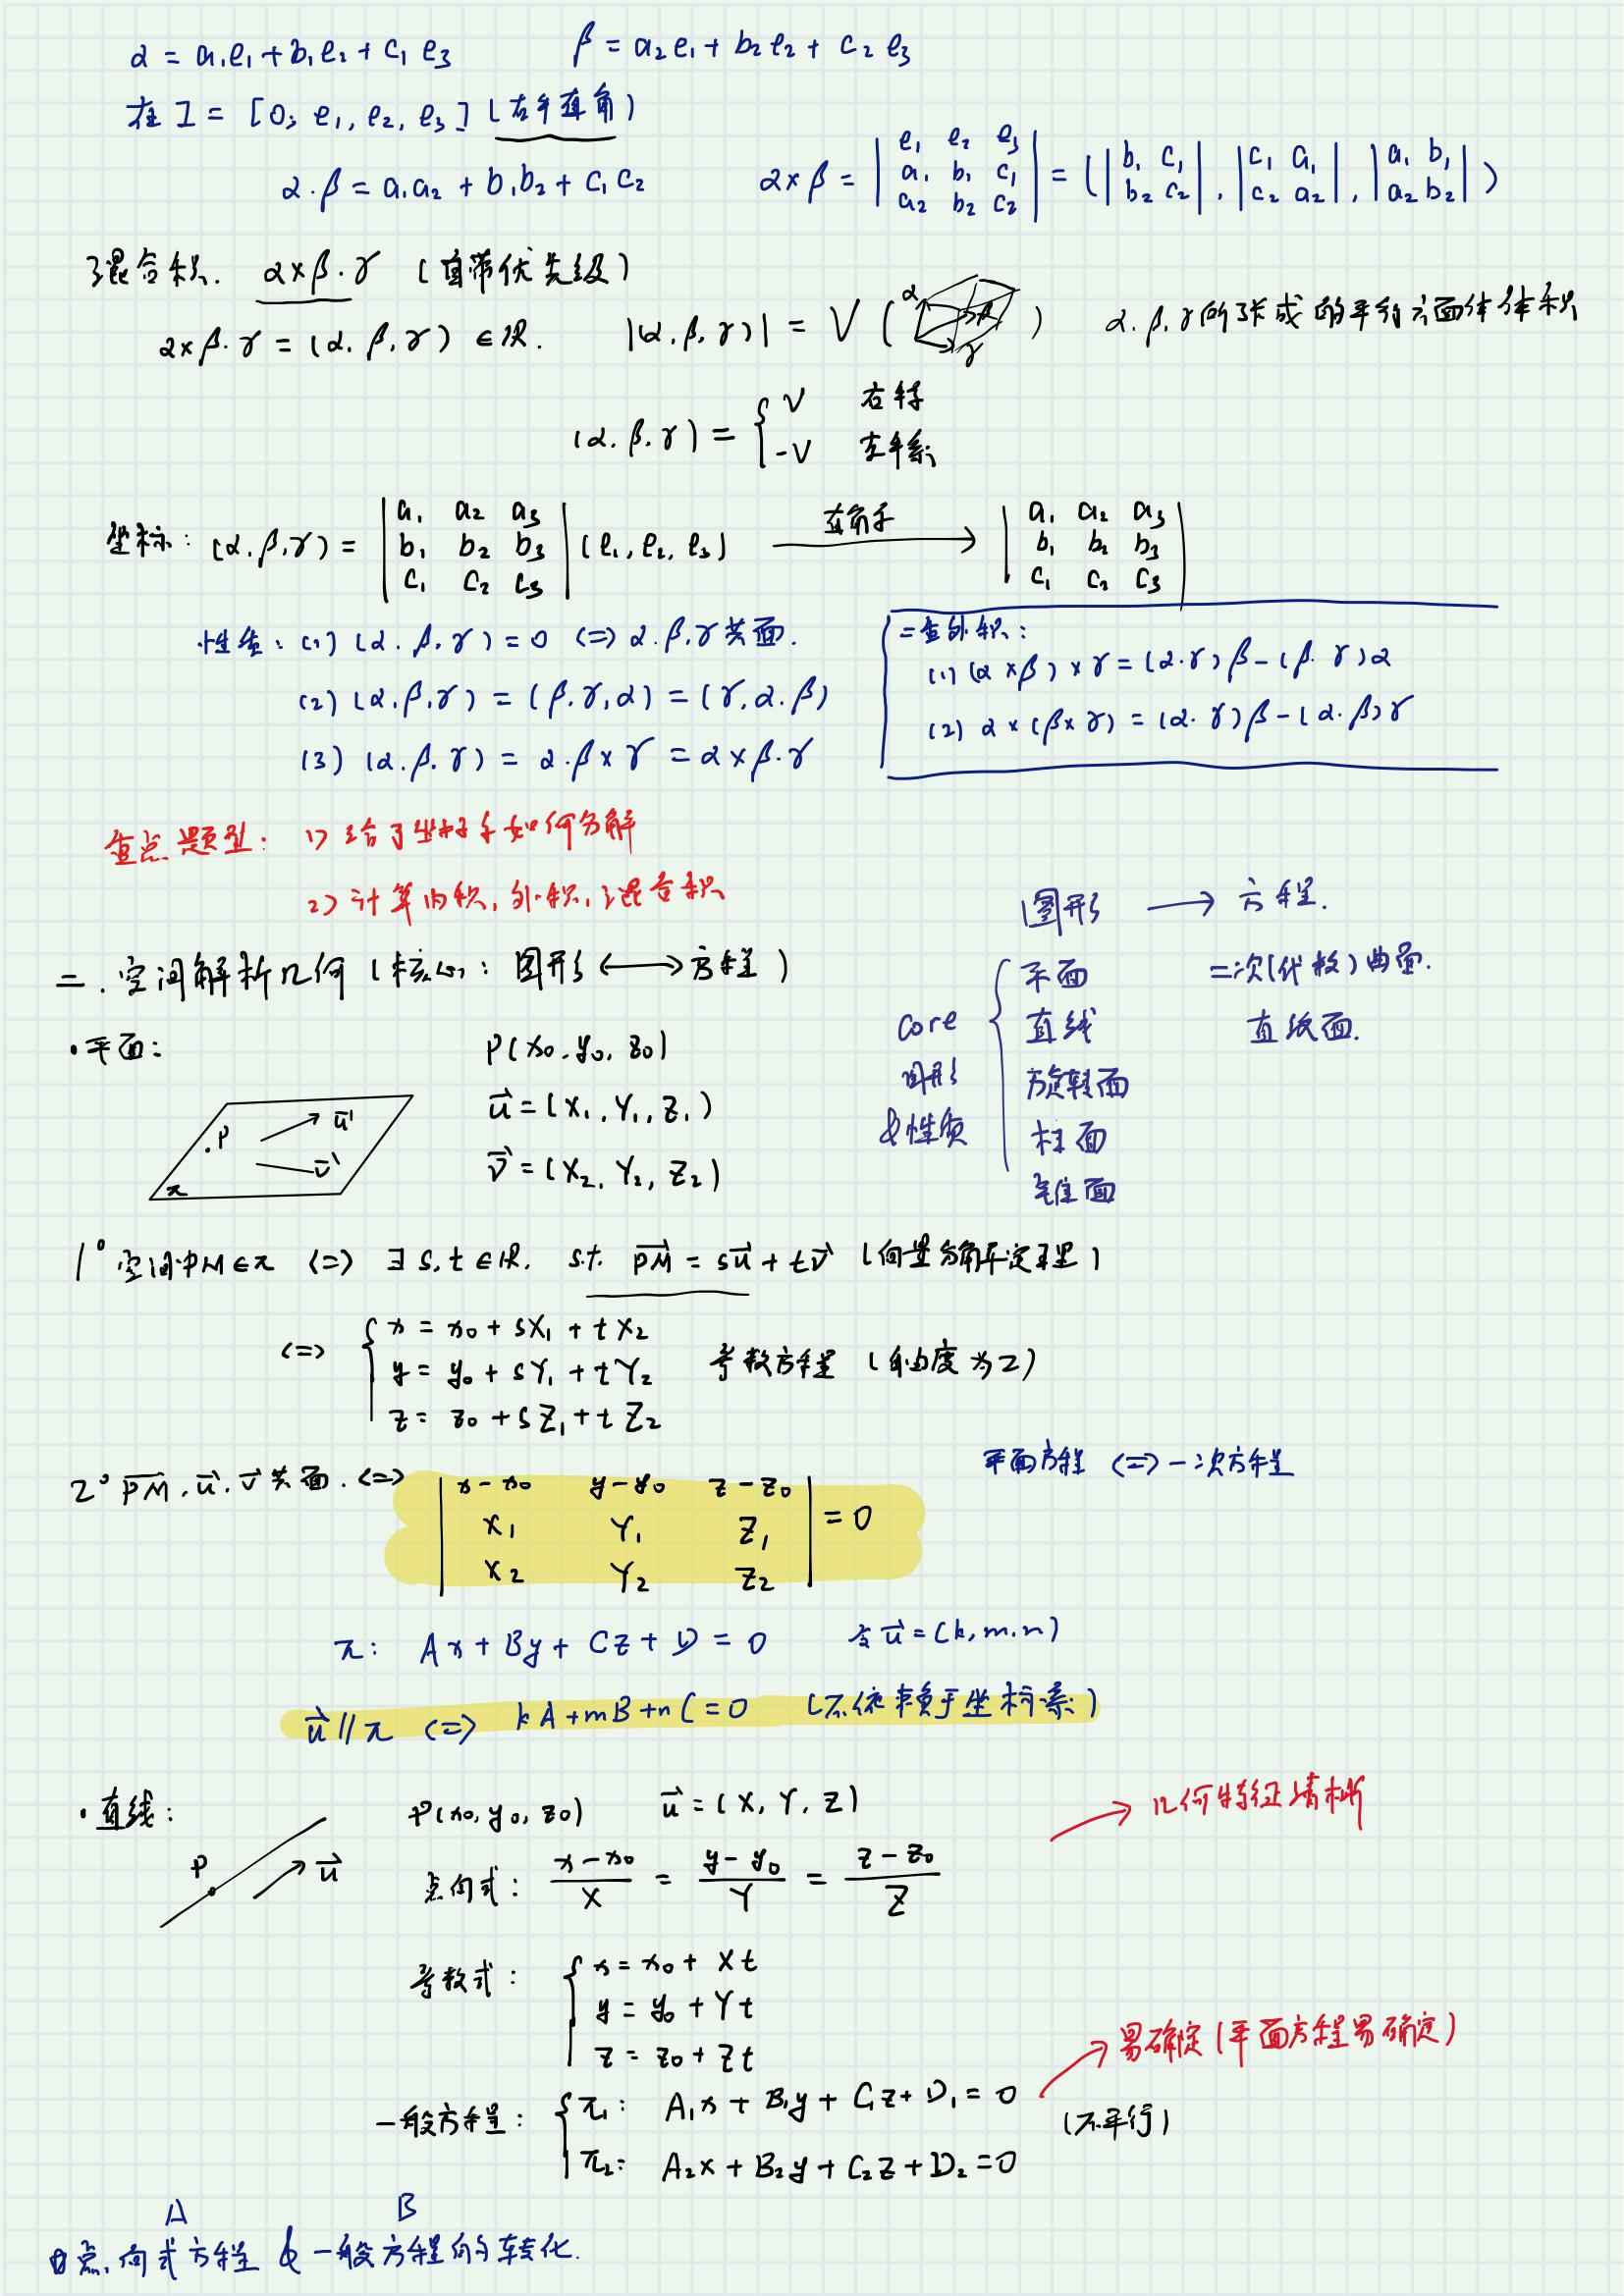 α = a₁e₁ + b₁e₂ + c₁e₃    β = a₂e₁ + b₂e₂ + c₂e₃
在 I = [O; e₁, e₂, e₃] (右手直角)
α·β = a₁a₂ + b₁b₂ + c₁c₂    α×β = | e₁ e₂ e₃ ; a₁ b₁ c₁ ; a₂ b₂ c₂ | = ( | b₁ c₁ ; b₂ c₂ | , | c₁ a₁ ; c₂ a₂ | , | a₁ b₁ ; a₂ b₂ | )
混合积. α×β·γ (自带优先级)
α×β·γ = (α, β, γ) ∈ℝ.    |(α, β, γ)| = V ( α β γ )    α.β.γ所张成的平行六面体体积
(α.β.γ) = { V 右手
-V 左手系
坐标: (α.β.γ) = | a₁ a₂ a₃ ; b₁ b₂ b₃ ; c₁ c₂ c₃ | (e₁, e₂, e₃) 直角系 → | a₁ a₂ a₃ ; b₁ b₂ b₃ ; c₁ c₂ c₃ |
性质: (1) (α.β.γ) = 0 <=> α.β.γ共面.
(2) (α.β.γ) = (β.γ,α) = (γ,α.β)
(3) (α.β.γ) = α·β×γ = α×β·γ
二重外积:
(1) (α×β)×γ = (α·γ)β - (β·γ)α
(2) α×(β×γ) = (α·γ)β - (α·β)γ
重点题型: 1) 给了坐标系如何分解
2) 计算内积, 外积, 混合积
二. 空间解析几何 (核心: 图形 ⟷ 方程)
图形 → 方程.
core
图形
&性质
平面
直线
旋转面
柱面
锥面
二次(代数)曲面.
直纹面.
·平面:
P u⃗ v⃗ π
P(x₀.y₀, z₀)
u⃗ = (X₁, Y₁, Z₁)
v⃗ = (X₂, Y₂, Z₂)
1° 空间中M∈π <=> ∃ s, t ∈ℝ. s.t. PM⃗ = su⃗ + tv⃗ (向量分解定理)
<=> { x = x₀ + sX₁ + tX₂
y = y₀ + sY₁ + tY₂    参数方程 (自由度为2)
z = z₀ + sZ₁ + tZ₂
平面方程 <=> 一次方程
2° PM⃗, u⃗, v⃗ 共面. <=> | x-x₀ y-y₀ z-z₀ ; X₁ Y₁ Z₁ ; X₂ Y₂ Z₂ | = 0
π: Ax + By + Cz + D = 0    令u⃗ = (k, m, n)
u⃗ // π <=> kA + mB + nC = 0 (不依赖于坐标系)
·直线:
P u⃗
P(x₀, y₀, z₀)    u⃗ = (X, Y, Z)
→ 几何特征清晰
点向式: (x-x₀)/X = (y-y₀)/Y = (z-z₀)/Z
参数式: { x = x₀ + Xt
y = y₀ + Yt
z = z₀ + Zt
→ 易确定(平面方程易确定)
一般方程: { π₁: A₁x + B₁y + C₁z + D₁ = 0
(不平行)
π₂: A₂x + B₂y + C₂z + D₂ = 0
A    B
点向式方程 & 一般方程的转化.